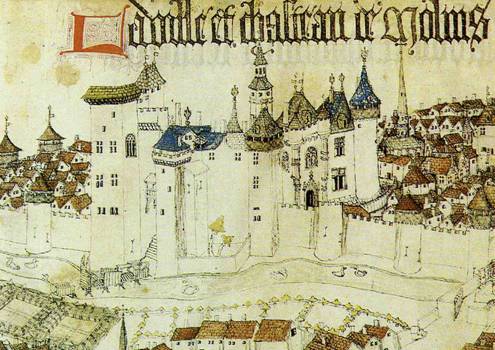 La ville et chasteau de Molins